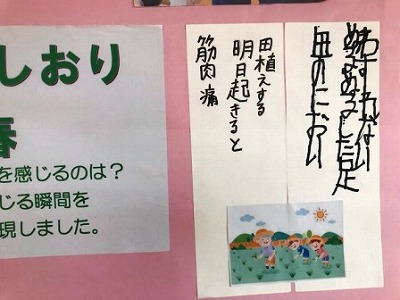 しおり
春
を感じるのは？
じる瞬間を
現しました。
わすれない
した足
血のにおい
田植えする
明日起きると
筋肉痛